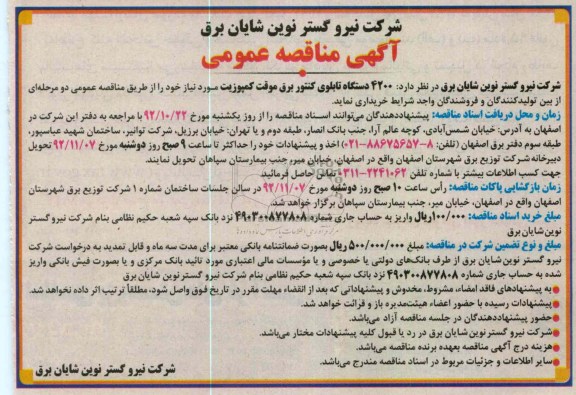 شرکت نیرو گستر نوین شایان برق
آگهی مناقصه عمومی
شرکت نیرو گستر نوین شایان برق در نظر دارد: ۴۲۰۰ دستگاه تابلوی کنتور برق موقت کمپوزیت مورد نیاز خود را از طریق مناقصه عمومی دو مرحله‌ای
از بین تولیدکنندگان و فروشندگان واجد شرایط خریداری نماید.
زمان و محل دریافت اسناد مناقصه: پیشنهاددهندگان می‌توانند اسناد مناقصه را از روز یکشنبه مورخ ۹۲/۱۰/۲۲ با مراجعه به دفتر این شرکت در
اصفهان به آدرس: خیابان شمس‌آبادی، کوچه عالم آرا، جنب بانک انصار، طبقه دوم و یا تهران: خیابان برزیل، شرکت توانیر، ساختمان شهید عباسپور،
طبقه سوم دفتر برق اصفهان (تلفن: ۸-۸۸۶۷۵۶۵۷-۰۲۱) اخذ و پیشنهادات خود را حداکثر تا ساعت ۹ صبح روز دوشنبه مورخ ۹۲/۱۱/۰۷ تحویل
دبیرخانه شرکت توزیع برق شهرستان اصفهان واقع در اصفهان، خیابان میر، جنب بیمارستان سپاهان تحویل نمایند.
جهت کسب اطلاعات بیشتر با شماره تلفن ۲۲۴۱۰۶۲-۰۳۱۱ تماس حاصل فرمائید.
زمان بازگشایی پاکات مناقصه: رأس ساعت ۱۰ صبح روز دوشنبه مورخ ۹۲/۱۱/۰۷ در سالن جلسات ساختمان شماره ۱ شرکت توزیع برق شهرستان
اصفهان واقع در اصفهان، خیابان میر، جنب بیمارستان سپاهان برگزار خواهد شد.
مبلغ خرید اسناد مناقصه: ۱۰۰/۰۰۰ریال واریز به حساب جاری شماره ۴۹۰۳۰۰۸۷۷۸۰۸ نزد بانک سپه شعبه حکیم نظامی بنام شرکت نیرو گستر
نوین شایان برق
مبلغ و نوع تضمین شرکت در مناقصه: مبلغ ۵۰۰/۰۰۰/۰۰۰ ریال بصورت ضمانتنامه بانکی معتبر برای مدت سه ماه و قابل تمدید به درخواست شرکت
نیرو گستر نوین شایان برق از طرف بانک‌های دولتی یا خصوصی و یا مؤسسات مالی اعتباری مورد تائید بانک مرکزی و یا بصورت فیش بانکی واریز
شده به حساب جاری شماره ۴۹۰۳۰۰۸۷۷۸۰۸ نزد بانک سپه شعبه حکیم نظامی بنام شرکت نیرو گستر نوین شایان برق
• به پیشنهادهای فاقد امضاء، مشروط، مخدوش و پیشنهاداتی که بعد از انقضاء مهلت مقرر در تاریخ فوق واصل شود، مطلقاً ترتیب اثر داده نخواهد شد.
• پیشنهادات رسیده با حضور اعضاء هیئت‌مدیره باز و قرائت خواهد شد.
• حضور پیشنهاددهندگان در جلسه مناقصه آزاد می‌باشد.
• شرکت نیرو گستر نوین شایان برق در رد یا قبول کلیه پیشنهادات مختار می‌باشد.
• هزینه درج آگهی مناقصه بعهده برنده مناقصه می‌باشد.
• سایر اطلاعات و جزئیات مربوط در اسناد مناقصه مندرج می‌باشد.
شرکت نیرو گستر نوین شایان برق